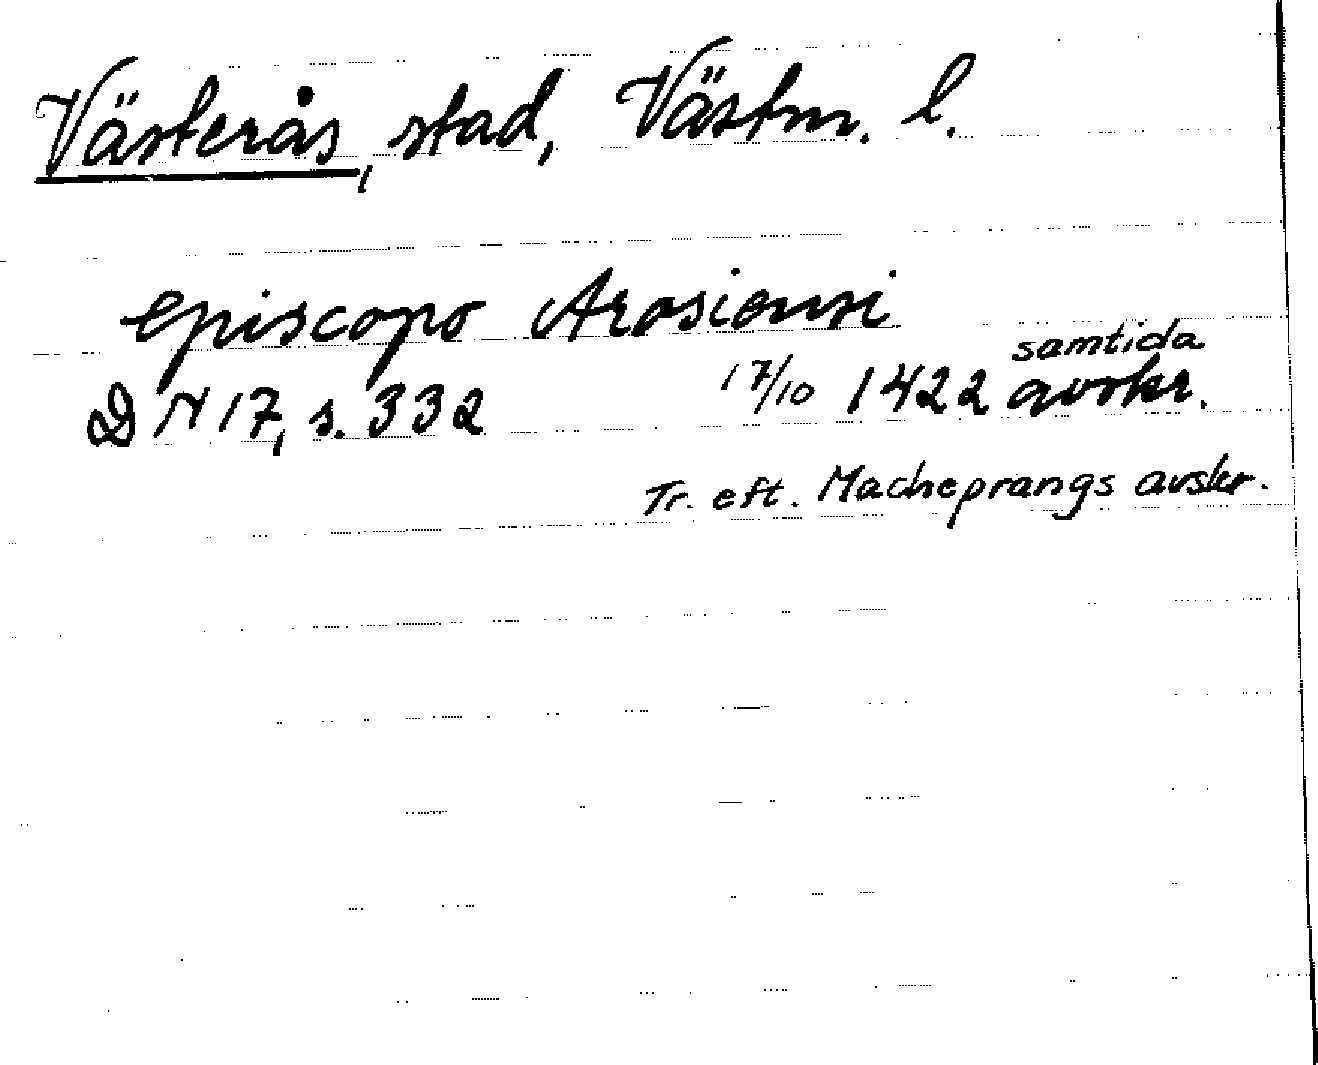 Västerås, stad, Västm. l.
episcopo Arosiensi
DN 17, s. 332 17/10 1422 samtida avskr.
Tr. eft. Macheprangs avskr.